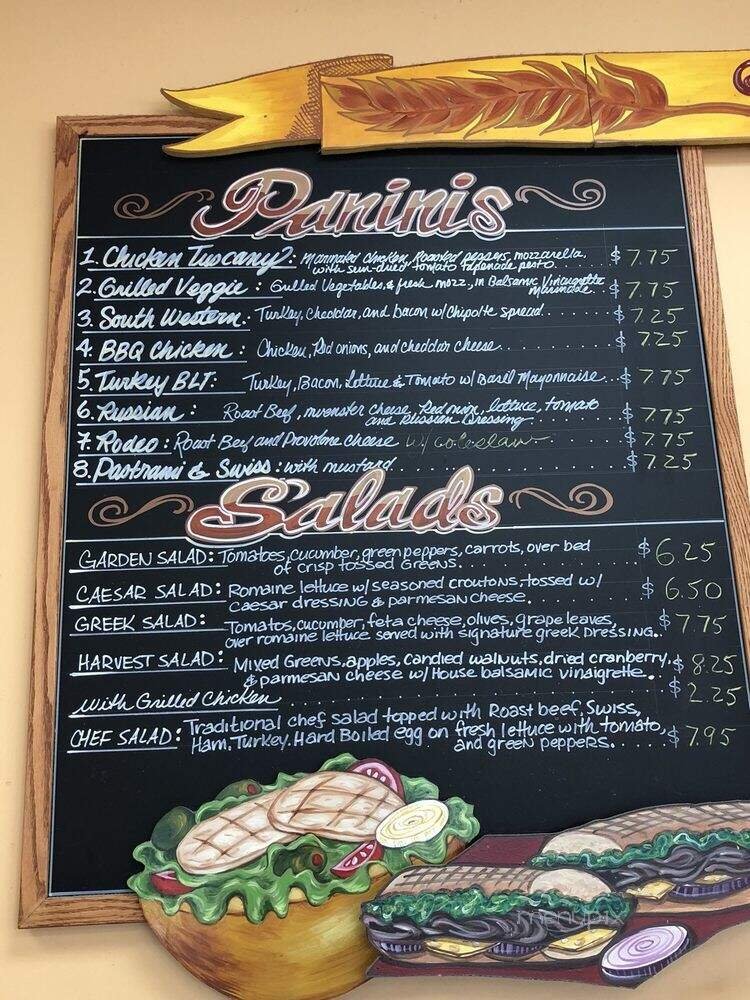 Paninis
1. Chicken Tuscany: Marinated chicken, Roasted peppers, mozzarella,
with sun-dried tomato tapenade pesto. $ 7.75
2. Grilled Veggie: Grilled Vegetables, & fresh mozz., in Balsamic Vinaigrette
Marinade.. $ 7.75
3. South Western: Turkey, Cheddar, and bacon w/Chipotle spread. $ 7.25
4. BBQ Chicken: Chicken, Red onions, and cheddar cheese. $ 7.25
5. Turkey BLT: Turkey, Bacon, Lettuce & Tomato w/ Basil Mayonnaise.. $ 7.75
6. Russian: Roast Beef, muenster cheese, Red onion, lettuce, tomato
and Russian Dressing $ 7.75
7. Rodeo: Roast Beef and Provolone cheese w/ coleslaw $ 7.75
8. Pastrami & Swiss: with mustard. $ 7.25
Salads
GARDEN SALAD: Tomatoes, cucumber, green peppers, carrots, over bed
of crisp tossed Greens. $ 6.25
CAESAR SALAD: Romaine lettuce w/ seasoned croutons, tossed w/
caesar dressing & parmesan cheese. $ 6.50
GREEK SALAD: Tomatos, cucumber, feta cheese, olives, grape leaves,
over romaine lettuce served with signature greek DRESSING.. $ 7.75
HARVEST SALAD: Mixed Greens, apples, candied walnuts, dried cranberry,
& parmesan cheese w/ House balsamic vinaigrette. $ 8.25
with Grilled Chicken $ 2.25
CHEF SALAD: Traditional chef salad topped with Roast beef, Swiss,
Ham, Turkey. Hard Boiled egg on fresh lettuce with tomato,
and green peppers. $ 7.95
menupix